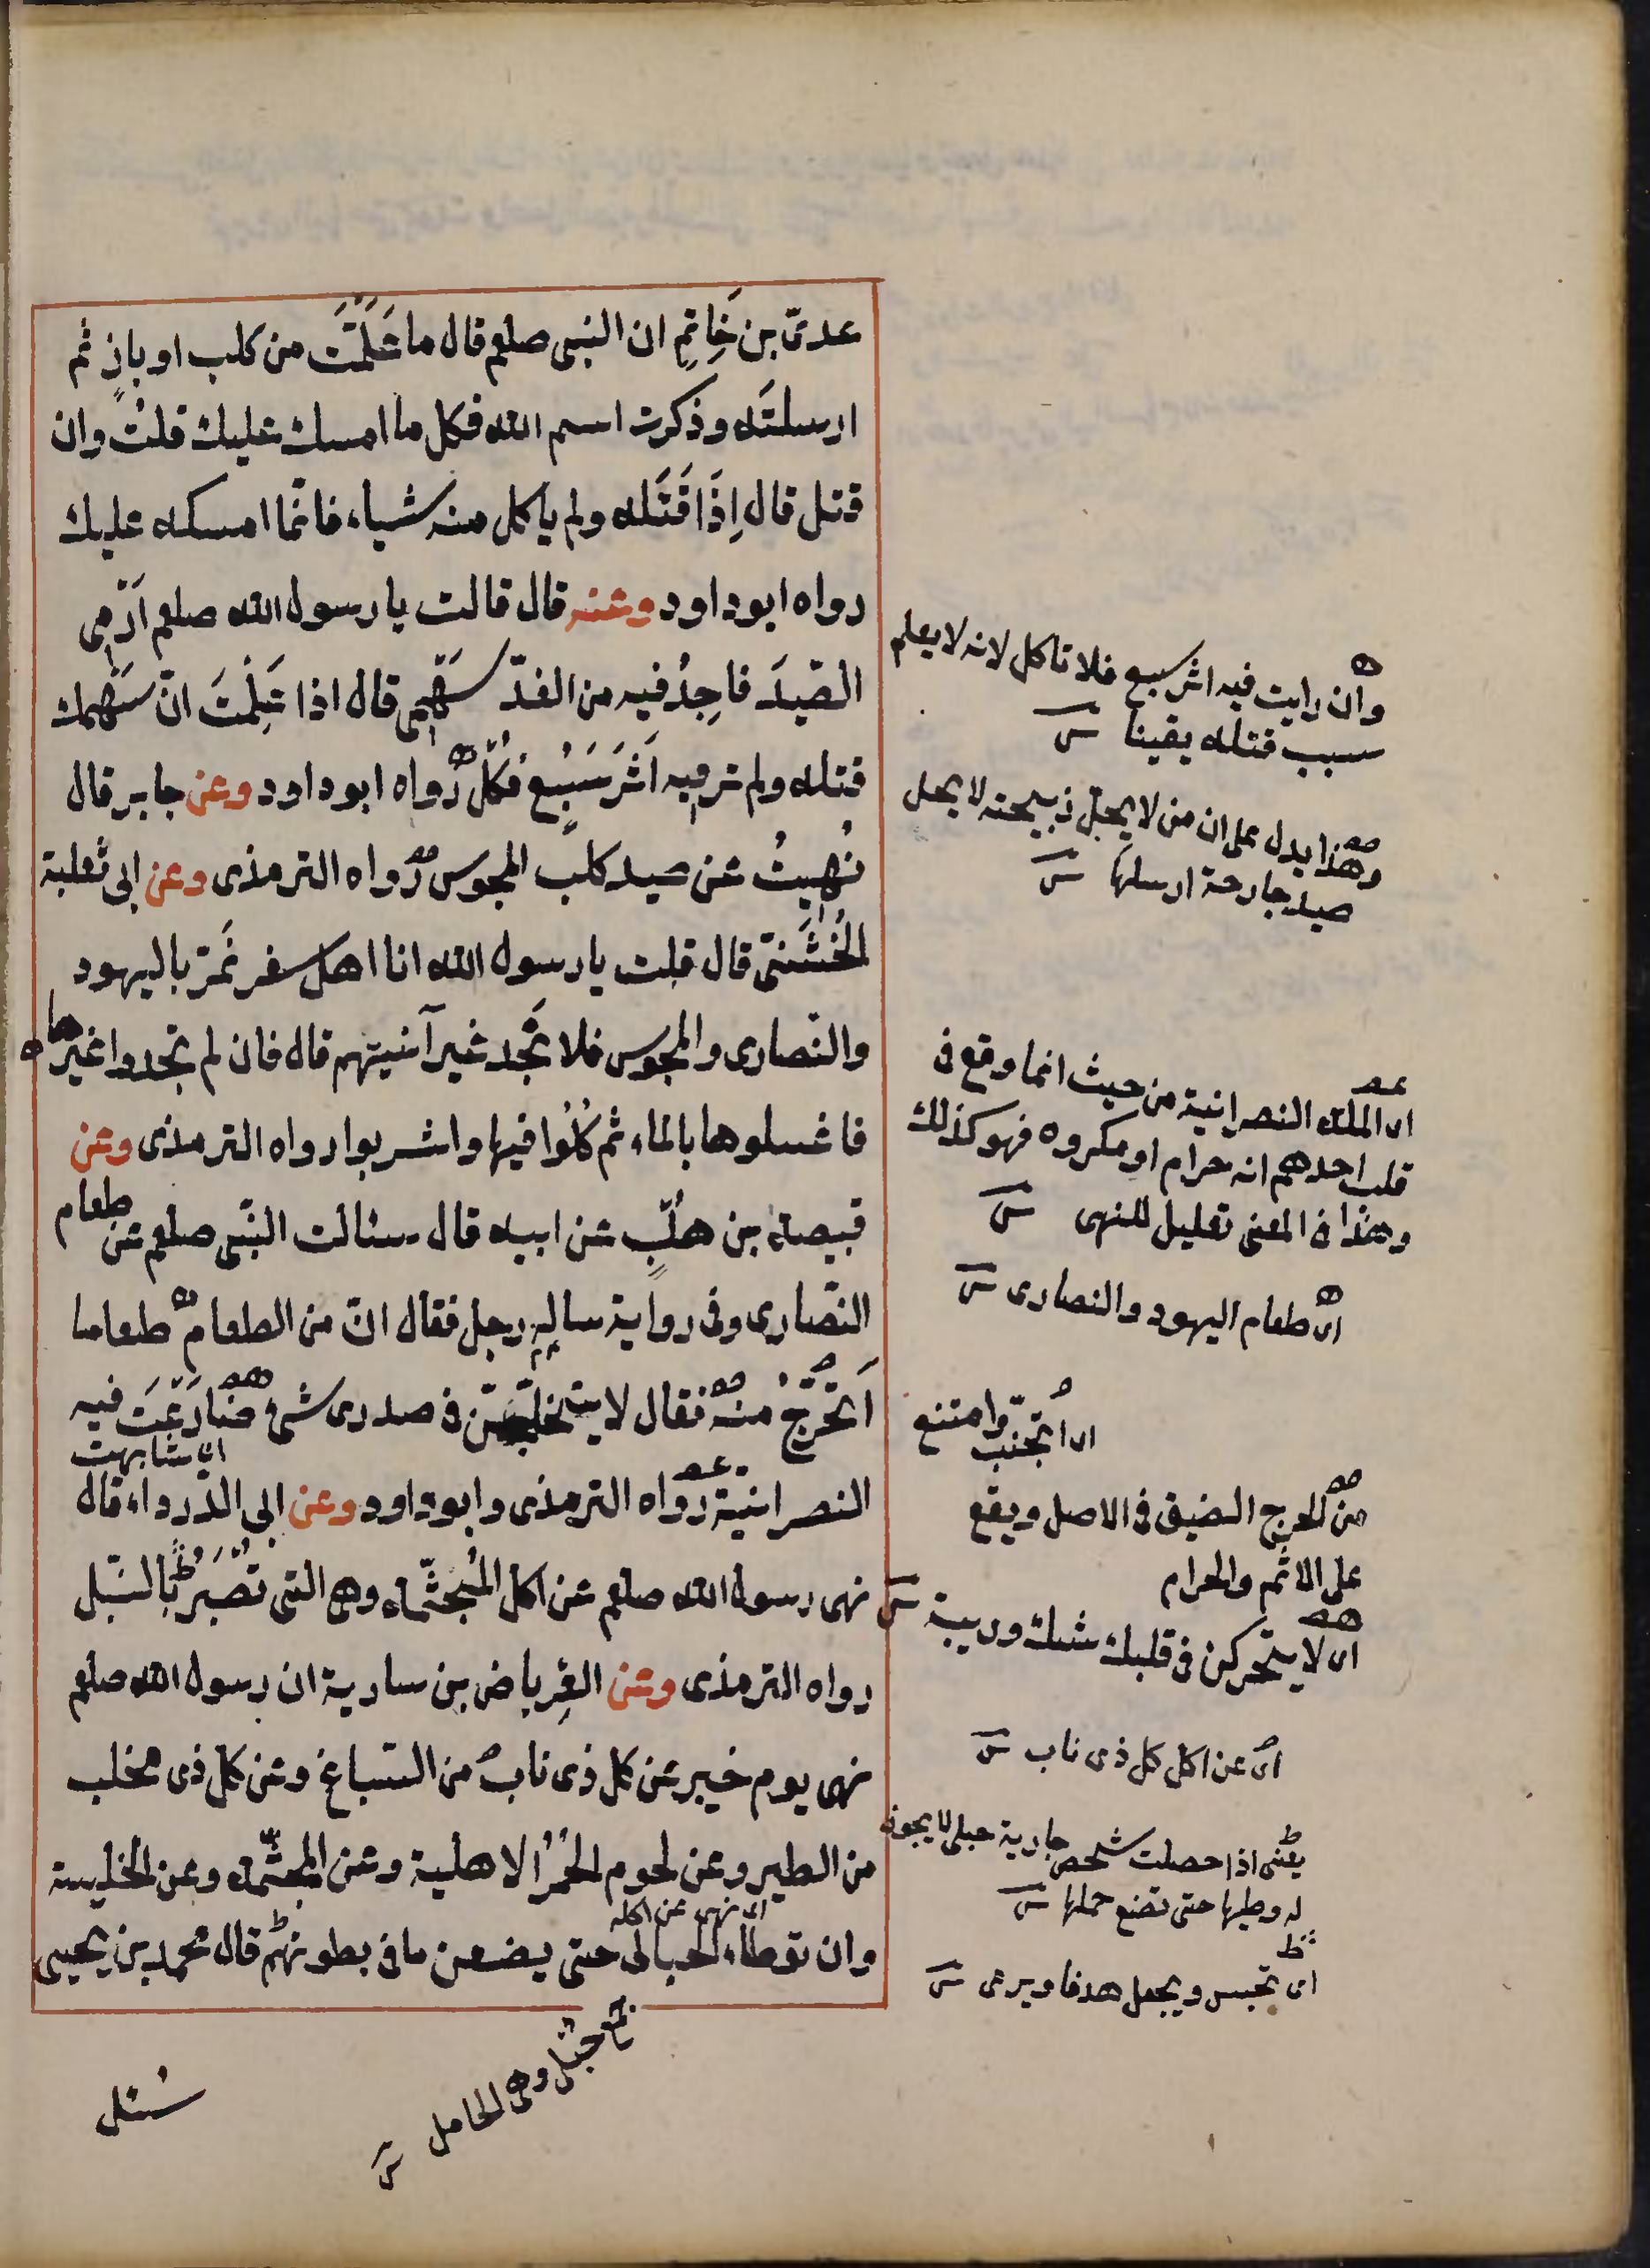 عدىّ بن خَاتِمٍ ان النبى صلعم قال ما عَلَّمْتَ من كلب او بازٍ ثم
ارسلتَه وذكرت اسم الله فكل ما امسك عليك قلتُ وان
قتل قال اِذَا قَتَله ولم ياكل منه شياء فانّما امسكه عليك
رواه ابوداود وعنه قال قالت يا رسول الله صلعم اَرْمِى
الصّيدَ فاجِدُ فيه من الغدّ سَهْمِى قال اذا عَلِمْتَ انّ سَهْمك
قتله ولم تر فيه اَثَرَ سَبُعٍ فكُلْ رواه ابوداود وعن جابر قال
نُهِيتُ عن صيد كلب المجوس رواه الترمذى وعن ابى ثعلبة
الخُشَنىّ قال قلت يا رسول الله انا اهل سفر نَمُرّ باليهود
والنّصارى والمجوس فلا نَجد غير آنيتهم قال فان لم تجدوا غيرها
فاغسلوها بالماء ثم كُلُوا فيها واشربوا رواه الترمذى وعن
قبيصة بن هُلْبٍ عن ابيه قال سئالت النبّى صلعم عن طعام
النّصارى وفى رواية ساله رجل فقال انّ من الطعام طعاما
اَتَحَرَّجُ منه فقال لا يتخلّجنّ فى صدرى شىء ضَارَعْتَ فيه
اى شابهت
النصرانيّة رواه الترمذى وابوداود وعن ابى الدّرداء قال
نهى رسول الله صلعم عن اكل المُجثّمة وهى التى تُصْبَرُ بالنّبل
رواه الترمذى وعن العِرباض بن سارية ان رسول الله صلعم
نهى يوم خيبر عن كل ذى ناب من السّباع وعن كل ذى مخلب
من الطير وعن لحوم الحُمُر الاهلية وعن المجثّمة وعن الخليسة
اى نهى عن اكله
وان توطاء الحبالى حتى يضعن ما فى بطونهم قال محمد بن يحيى
جمع حبلى وهى الحامل
سئل
وان رايت فيه اثر سبع فلا تاكل لانه لا يعلم
سبب قتله يقينا
وهذا يدل على ان من لا يحل ذبيحته لا يحل
صيد جارحة ارسلها
اى الملة النصرانية من حيث انما وقع فى
قلب احدهم انه حرام او مكروه فهو كذلك
وهذا فى المعنى تعليل للنهى
اى طعام اليهود والنصارى
اى اتجنب وامتنع
من الحرج الضيق فى الاصل ويقع
على الاثم والحرام
اى لا يتحركن فى قلبك شك وريبة
اى عن اكل كل ذى ناب
يعنى اذا حصلت شخص جارية حبلى لا يجوز
له وطيها حتى تضع حملها
اى تحبس ويجعل هدفا ويرمى